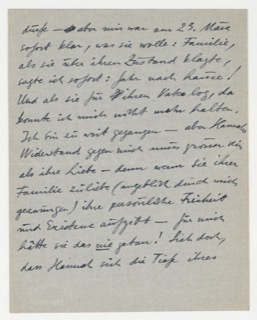 durfte – aber mir war am 23. März
sofort klar, was sie wolle: Familie,
als sie über ihren Zustand klagte,
sagte ich sofort: Fahr nach hause!
Und als sie für ihren Vater log, da
konnte ich mich nicht mehr halten.
Ich bin zu weit gegangen – aber Hannahs
Widerstand gegen mich muss grösser sein
als ihre Liebe – denn wenn sie ihrer
Familie zuliebe (angeblich durch mich
gezwungen) ihre persönliche Freiheit
und Existenz aufgibt – für mich
hätte sie das nie getan! Sieh doch,
dass Hannah sich die Tiefe ihres